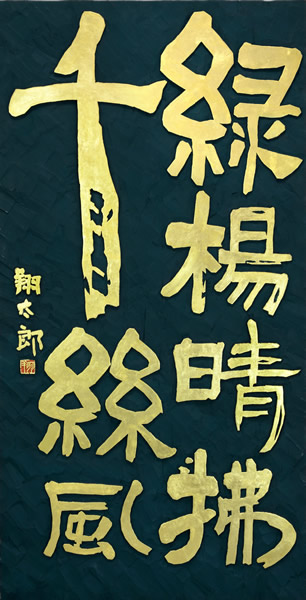 緑楊晴拂
千絲風
翔太郎